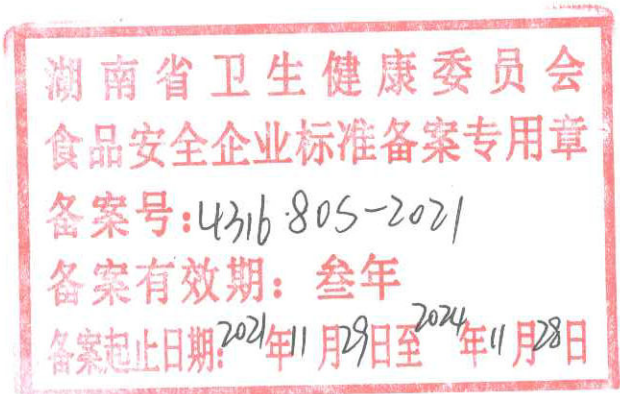 湖南省卫生健康委员会
食品安全企业标准备案专用章
备案号:4316·805-2021
备案有效期：叁年
备案起止日期:2021年11月29日至2024年11月28日